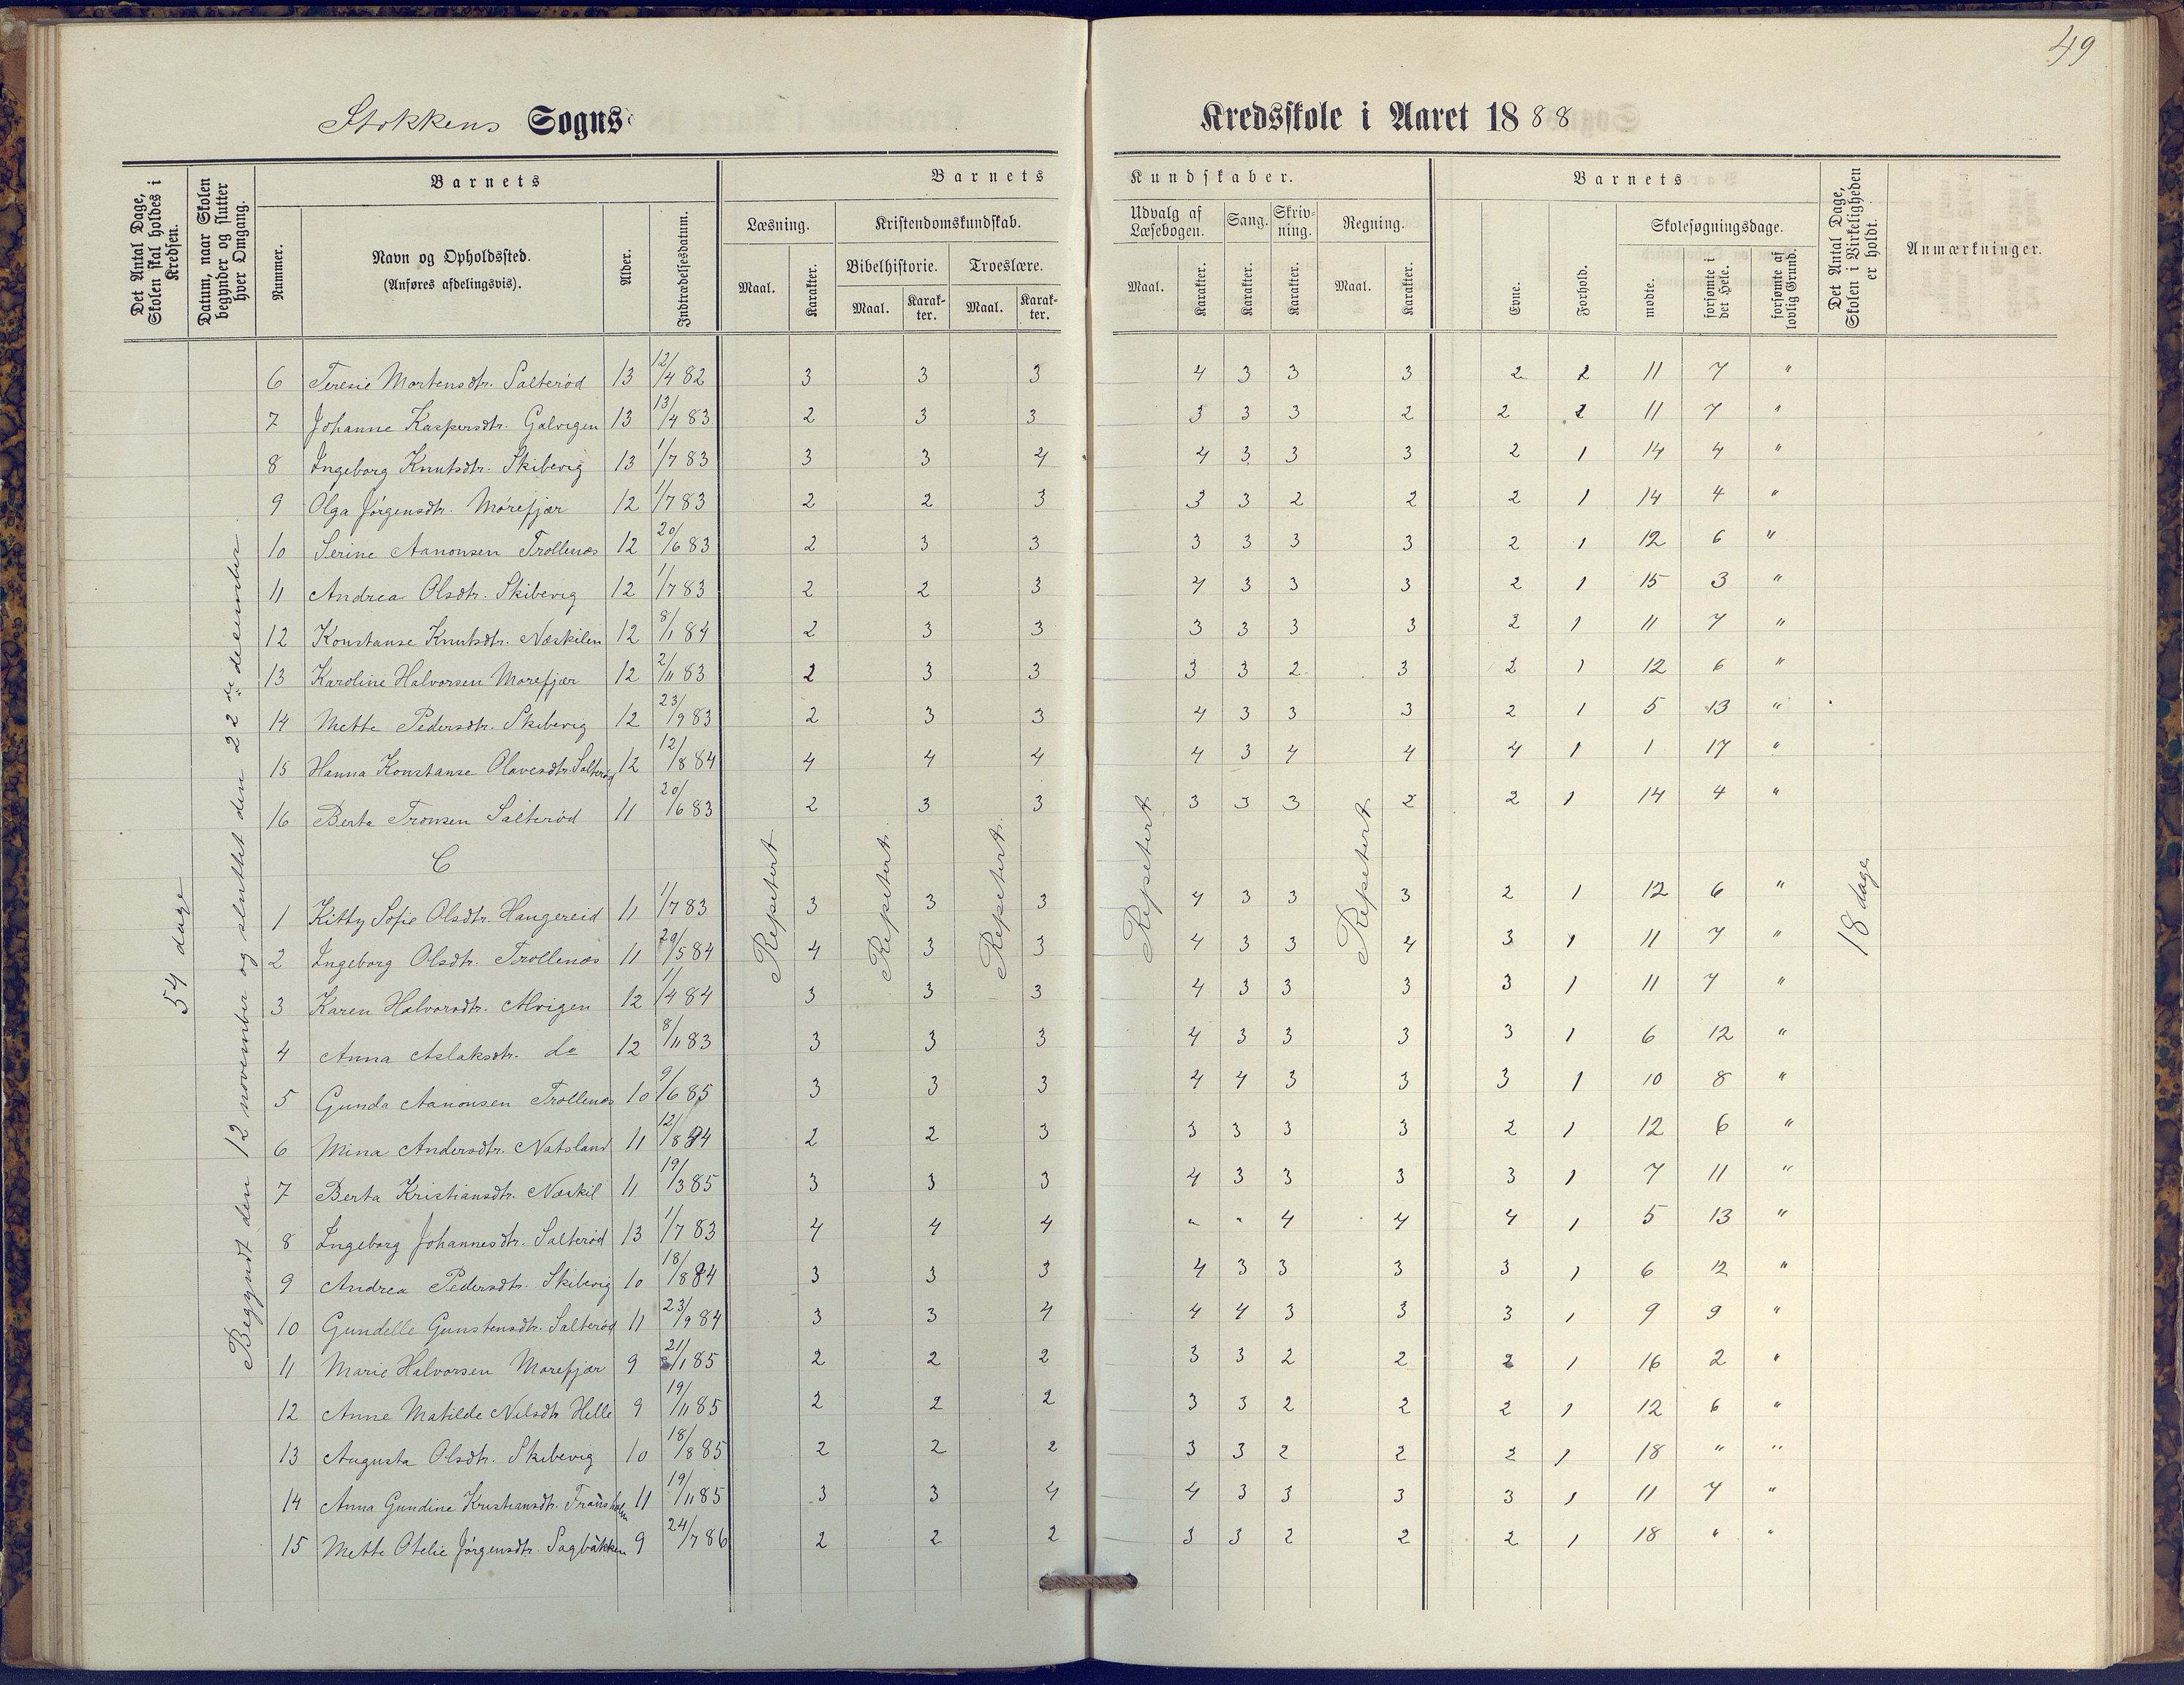 49
Stokkens Sogns
Kredsskole i Aaret 1888
Det Antal Dage, Skolen skal holdes i Kredsen.
Datum, naar Skolen begynder og slutter hver Omgang.
Barnets
Nummer.
Navn og Opholdssted.
(Anføres afdelingsvis).
Alder.
Indtrædelsesdatum.
Barnets
Kundskaber.
Læsning.
Maal.
Karakter.
Kristendomskundskab.
Bibelhistorie.
Maal.
Karakter.
Troeslære.
Maal.
Karakter.
Udvalg af Læsebogen.
Maal.
Karakter.
Sang.
Karakter.
Skrivning.
Karakter.
Regning.
Maal.
Karakter.
Barnets
Evne.
Forhold.
Skolesøgningsdage.
mødte.
forsømte i det Hele.
forsømte af lovlig Grund.
Det Antal Dage, Skolen i Virkeligheden er holdt.
Anmærkninger.
54 dage
Begyndt den 12 november og sluttet den 22de december
6 Teresie Mortensdtr. Salterød 13 12/4 82 3 3 3 4 3 3 3 2 2 11 7 "
7 Johanne Kaspersdtr. Galvigen 13 13/4 83 2 3 3 3 3 3 2 2 2 11 7 "
8 Ingeborg Knutsdtr. Skibevig 13 1/7 83 3 3 4 4 3 3 3 2 1 14 4 "
9 Olga Jørgensdtr. Mørefjær 12 1/7 83 2 2 3 3 3 2 2 2 1 14 4 "
10 Serine Aanonsen Trollenæs 12 20/6 83 2 3 3 3 3 3 3 2 1 12 6 "
11 Andrea Olsdtr. Skibevig 12 1/7 83 2 2 3 4 3 3 3 2 1 15 3 "
12 Konstanse Knutsdtr. Næskilen 12 8/1 84 2 3 3 3 3 3 3 2 1 11 7 "
13 Karoline Halvorsen Morefjær 12 2/11 83 2 3 3 3 3 2 3 2 1 12 6 "
14 Mette Pedersdtr. Skibevig 12 23/9 83 2 3 3 4 3 3 3 2 1 5 13 "
15 Hanna Konstanse Olavesdtr. Salterød 12 12/8 84 4 4 4 4 3 4 4 4 1 1 17 "
16 Berta Tronsen Salterød 11 20/6 83 2 3 3 3 3 3 2 2 1 14 4 "
C
Repetert Repetert Repetert Repetert Repetert
18 dage
1 Kitty Sofie Olsdtr. Haugereid 11 1/7 83 3 3 3 4 3 3 3 2 1 12 6 "
2 Ingeborg Olsdtr. Trollenæs 11 29/5 84 4 3 3 4 3 3 4 3 1 11 7 "
3 Karen Halvorsdtr. Alvigen 12 1/4 84 3 3 3 4 3 3 3 3 1 11 7 "
4 Anna Aslaksdtr. do 12 8/11 83 3 3 3 4 3 3 3 3 1 6 12 "
5 Gunda Aanonsen Trollenæs 10 9/6 85 3 3 3 4 4 3 3 3 1 10 8 "
6 Mina Andersdtr. Natsland 11 12/8 84 2 2 3 3 3 3 3 2 1 12 6 "
7 Berta Kristiansdtr. Næskil 11 19/3 85 3 3 3 4 3 3 3 3 1 7 11 "
8 Ingeborg Johannesdtr. Salterød 13 1/7 83 4 4 4 " " 4 4 4 1 5 13 "
9 Andrea Pedersdtr. Skibevig 10 18/8 84 3 3 3 4 3 3 3 3 1 6 12 "
10 Gundelle Gunstensdtr. Salterød 11 23/9 84 3 3 4 4 4 3 3 3 1 9 9 "
11 Marie Halvorsen Morefjær 9 21/1 85 2 2 2 3 3 2 2 2 1 16 2 "
12 Anne Matilde Nilsdtr Helle 9 19/11 85 2 2 2 3 3 2 2 2 1 12 6 "
13 Augusta Olsdtr. Skibevig 10 18/8 85 2 2 2 3 3 2 2 2 1 18 " "
14 Anna Gundine Kristiansdtr. 11 19/11 85 3 3 4 4 3 3 3 3 1 11 7 "
15 Mette Otelie Jørgensdtr. Sagbakken 9 24/7 86 2 2 2 3 3 2 2 2 1 18 " "